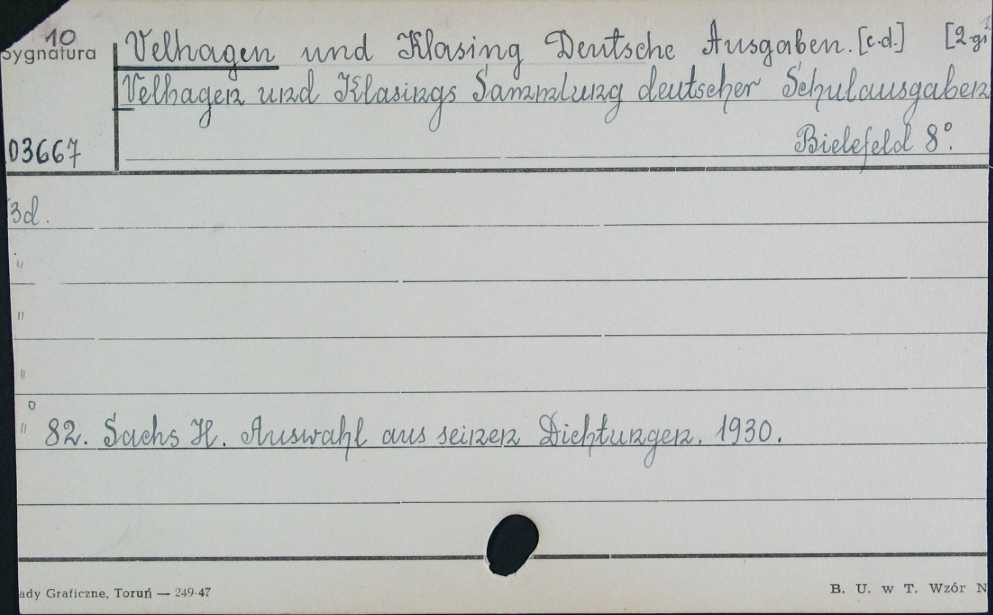 10
Sygnatura
Velhagen und Klasing Deutsche Ausgaben. [c.d.] [2-gi
Velhagen und Klasings Sammlung deutscher Schulausgaben
03667
Bielefeld 8°.
Bd.
"
"
"
" 82. Sachs H. Auswahl aus seinen Dichtungen. 1930.
ady Graficzne, Toruń — 249-47
B. U. w T. Wzór N